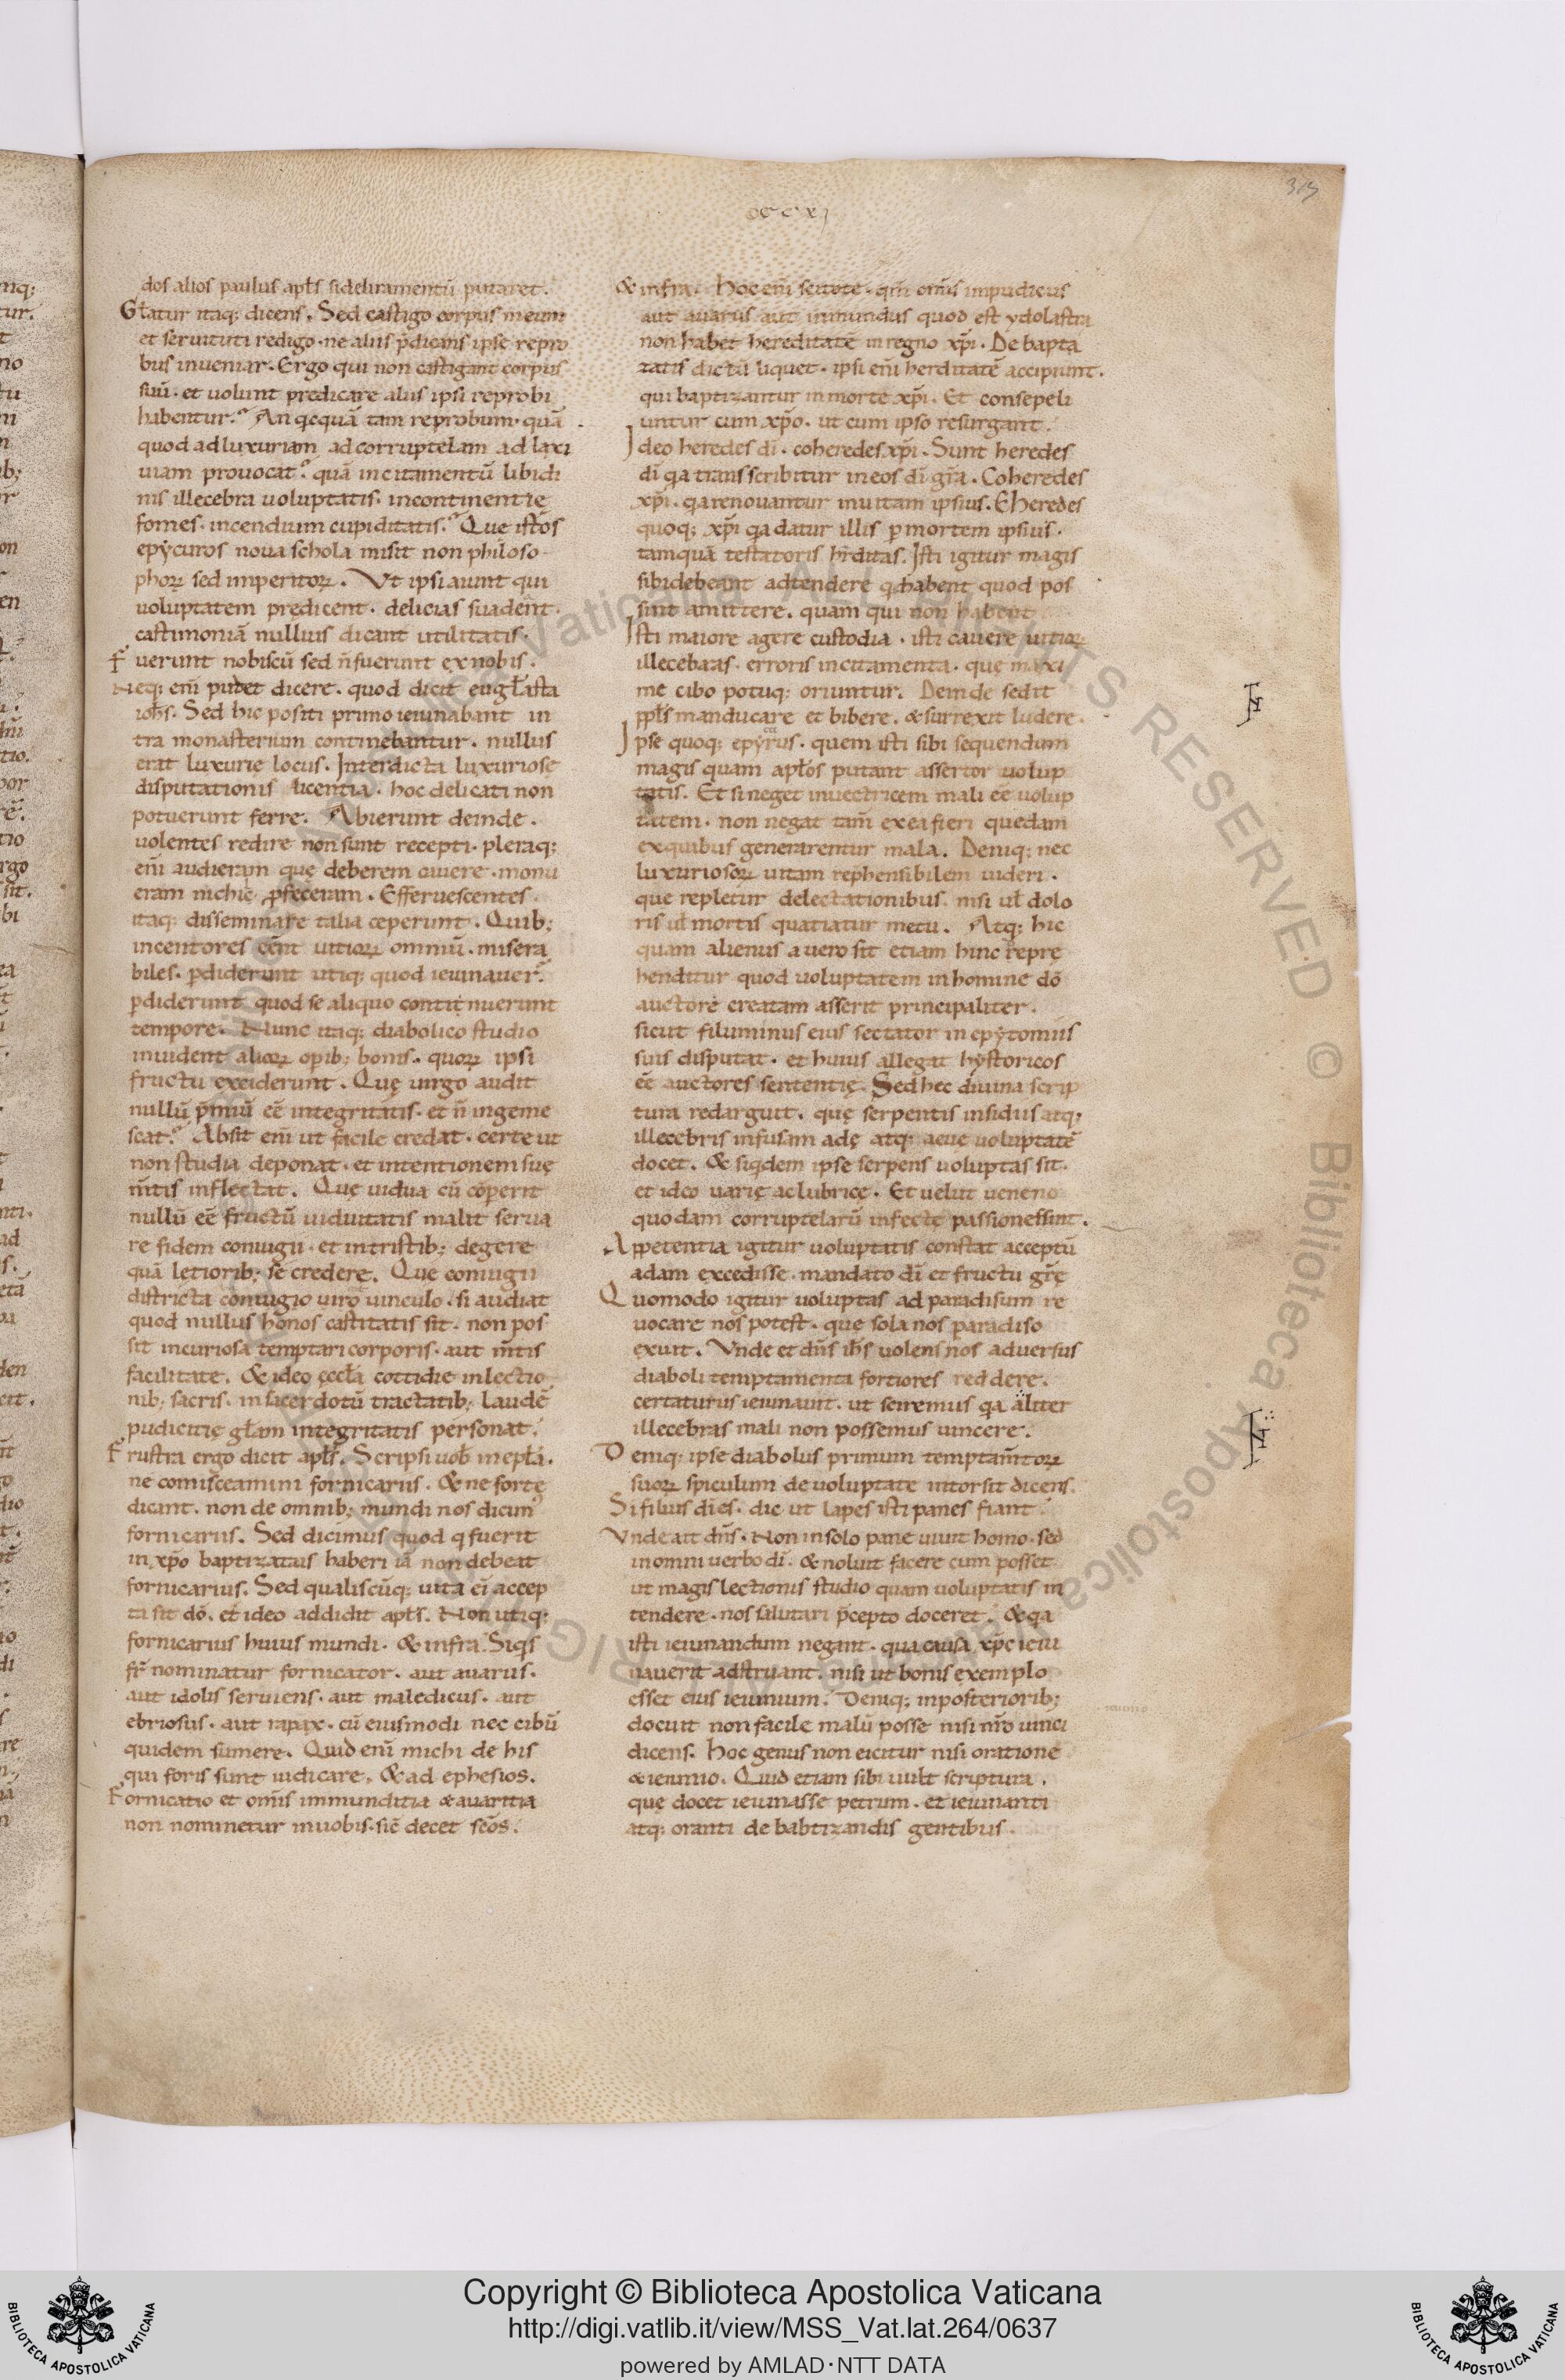 315
cccxj
dos alios paulus apłs si deliramentũ putaret.
Głatur itaq; dicens. Sed castigo corpus meum
et seruituti redigo. ne aliis p̃dicans ipse repro
bus inueniar. Ergo qui non castigant corpus
suũ. et uolunt predicare aliis ipsi reprobi
habentur. An qcquã tam reprobum. quã
quod ad luxuriam ad corruptelam ad lasci
uiam prouocat. quã incitamentũ libidi
nis illecebra uoluptatis. incontinentię
fomes. incendium cupiditatis. Que istos
epycuros noua schola misit non philoso
phoꝝ sed imperitoꝝ. Vt ipsi aiunt qui
uoluptatem predicent. delicias suadent.
castimoniã nullius dicant utilitatis.
Fuerunt nobiscũ sed ñ fuerunt ex nobis.
Neq; em̃ pudet dicere. quod dicit eugłasta
ioh̃s. Sed hic positi primo ieiunabant in
tra monasterium continebantur. nullus
erat luxurie locus. Interdicta luxuriosę
disputationis licentia. hoc delicati non
potuerunt ferre. Abierunt deinde.
uolentes redire non sunt recepti. pleraq;
em̃ audieram quę deberem cauere. monu
eram nichil profeceram. Efferuescentes
itaq; disseminare talia ceperunt. Quib;
incentores eẽnt uitioꝝ omniũ. misera
biles. ꝑdiderunt utiq; quod ieiunauer̃.
ꝑdiderunt quod se aliquo continuerunt
tempore. Nunc itaq; diabolico studio
inuident alioꝝ opib; bonis. quoꝝ ipsi
fructu exciderunt. Quę uirgo audit
nullũ p̃miũ eẽ integritatis. et ñ ingeme
scat. Absit em̃ ut facile credat. certe ut
non studia deponat. et intentionem suę
m̃tis inflectat. Quę uidua cũ cõperit
nullũ eẽ fructũ uiduitatis malit serua
re fidem coniugii. et in tristib; degere
quã letiorib; se credere. Que coniugii
districta coniugio uiro uinculo. si audiat
quod nullus honos castitatis sit. non pos
sit incuriosa temptari corporis. aut m̃tis
facilitate. & ideo ęccła cottidie in lectio
nib; sacris. in sacerdotũ tractatib; laudẽ
pudicitię głam integritatis personat.
Frustra ergo dicit apłs. Scripsi uob̃ in epła.
ne comisceamini fornicariis. & ne forte
dicant. non de omnib; mundi nos dicim̃
fornicariis. Sed dicimus quod q fuerit
in xp̃o baptizatus haberi iã non debeat
fornicarius. Sed qualiscũq; uita ei accep
ta sit dõ. et ideo addidit apłs. Non utiq;
fornicarius huius mundi. & infra. Siqs
fr̃ nominatur fornicator. aut auarus.
aut idolis seruiens. aut maledicus. aut
ebriosus. aut rapax. cũ eiusmodi nec cibũ
quidem sumere. Quid em̃ michi de his
qui foris sunt iudicare. & ad ephesios.
Fornicatio et om̃is immunditia & auaritia
non nominetur in uobis. sic̃ decet sc̃os.
& infra. Hoc em̃ scitote. qm̃ om̃is impudicus
aut auarus aut inmundus quod est ydolastra
non habet hereditatẽ in regno xp̃i. De bapti
zatis dictũ liquet. ipsi em̃ herditatẽ accipiunt.
qui baptizantur in morte xp̃i. Et consepeli
untur cum xp̃o. ut cum ipso resurgant.
Ideo heredes dĩ. coheredes xp̃i. Sunt heredes
dĩ qa transscribitur in eos dĩ gr̃a. Coheredes
xp̃i. qa renouantur in uitam ipsius. E heredes
quoq; xp̃i qa datur illis ꝑ mortem ipsius.
tamquã testatoris hr̃ditas. Isti igitur magis
sibi debeant adtendere qd habent quod pos
sint amittere. quam qui non habent
Isti maiore agere custodia. isti cauere uitioꝝ
illecebaas. erroris incitamenta. que maxi
me cibo potuq; oriuntur. Deinde sedit
ppłs manducare et bibere. & surrexit ludere.
Ipse quoq; epyrus. quem isti sibi sequendum
magis quam apłos putant assertor uolup
tatis. Et si neget inuectricem mali eẽ uolup
tatem. non negat tam̃ ex ea fieri quedam
ex quibus generarentur mala. Deniq; nec
luxuriosoꝝ uitam rep̃hensibilem uideri.
que repletur delectationibus. nisi uł dolo
ris uł mortis quatiatur metu. Atq; hic
quam alienus a uero sit etiam hinc reprę
henditur quod uoluptatem in homine dõ
auctore creatam asserit principaliter.
sicut filuminus eius sectator in epytomiis
suis disputat. et huius allegat hystoricos
eẽ auctores sententię. Sed hec diuina scrip
tura redarguit. quę serpentis insidiis atq;
illecebris infusam adę atq; aeuę uoluptatẽ
docet. & siqdem ipse serpens uoluptas sit.
et ideo uarię ac lubricę. Et uelut ueneno
quodam corruptelarũ infectę passiones sint.
Appetentia igitur uoluptatis constat acceptũ
adam excedisse. mandato dĩ et fructu gr̃ę
Quomodo igitur uoluptas ad paradisum re
uocare nos potest. que sola nos paradiso
exuit. Vnde et dñs ih̃s uolens nos aduersus
diaboli temptamenta fortiores reddere.
certaturus ieiunauit. ut sciremus qa aliter
illecebras mali non possemus uincere.
Deniq; ipse diabolus primum temptam̃toꝝ
suoꝝ spiculum de uoluptate intorsit dicens.
Si filius dĩ es. dic ut lapes isti panes fiant.
Vnde ait dñs. Non in solo pane uiuit homo. sed
in omni uerbo dĩ. & noluit facere cum posset
ut magis lectionis studio quam uoluptatis in
tendere. nos salutari p̃cepto doceret. & qa
isti ieiunandum negant. qua causa xp̃c ieiu
nauerit adstruant. nisi ut bonis exemplo
esset eius ieiunium. Deniq; in posteriorib;
docuit non facile malũ posse nisi nr̃o uinci
dicens. Hoc genus non eicitur nisi oratione
& ieiunio. Quid etiam sibi uult scriptura.
quę docet ieiunasse petrum. et ieiunanti
atq; oranti de babtizandis gentibus
Copyright © Biblioteca Apostolica Vaticana
http://digi.vatlib.it/view/MSS_Vat.lat.264/0637
powered by AMLAD·NTT DATA
BIBLIOTECA APOSTOLICA VATICANA
BIBLIOTECA APOSTOLICA VATICANA